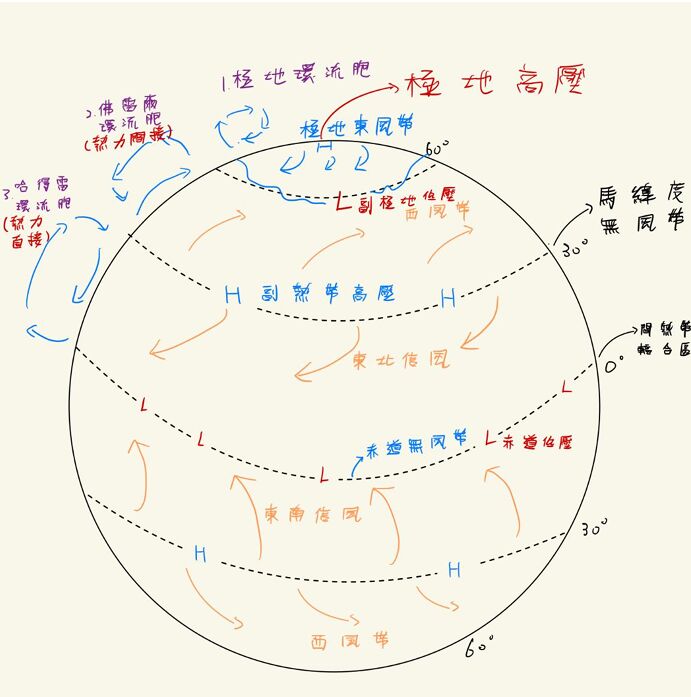 1.極地環流胞
極地高壓
2.佛雷爾
環流胞
(熱力間接)
極地東風帶
H
60°
3.哈得雷
環流胞
(熱力
直接)
L副極地低壓
西風帶
馬緯度
無風帶
30°
H 副熱帶高壓 H
間熱帶
輻合區
0°
東北信風
L
L
L
赤道無風帶
L赤道低壓
L
東南信風
30°
H
H
西風帶
60°